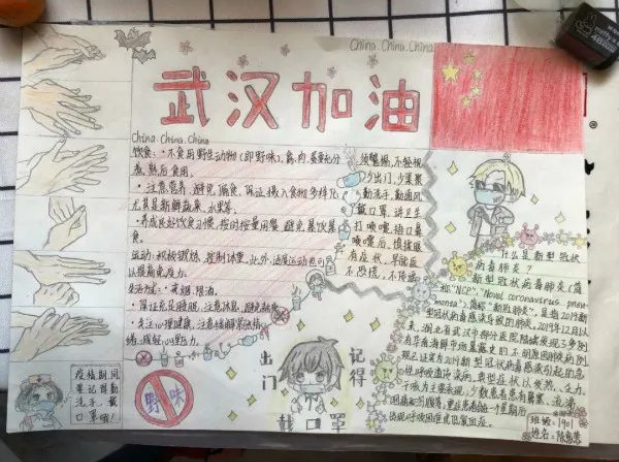 China. China. China
武汉加油
China. China. China
饮食：·不食用野生动物（即野味），禽、肉、蛋要充分
煮熟后食用。
·注意营养，避免偏食，保证摄入食物多样
尤其是新鲜蔬菜、水果等。
·养成良好饮食习惯，按时按量用餐，避免暴饮暴
食。
运动：积极锻炼，控制体重，此外，适度运动也可
以提高免疫力。
生活方式：·戒烟、限酒。
·保证充足睡眠，注意休息，避免
·关注心理健康，注意
须警惕，不轻视
少出门，少聚聚
勤洗手，勤通风
戴口罩，讲卫生
打喷嚏，捂口鼻
喷嚏后，慎揉眼
有症状，早就医
不恐慌，不传谣
什么是新型冠状
病毒肺炎？
新型冠状病毒肺炎（简
称"NCP"，"Novel coronavirus pneu-
monea"），简称"新冠肺炎"，是指2019新
型冠状病毒感染导致的肺炎。2019年12月以
来，湖北省武汉市部分医院陆续发现了多例
有华南海鲜市场暴露史的不明原因肺炎病例
现已证实为2019新型冠状病毒感染引起的急
性呼吸道传染病。典型症状以发热、乏力、
干咳为主要表现，少数患者患有鼻塞、流涕
出门
记得
戴口罩
野味
疫情期间
要记得勤
洗手、戴
口罩哦！
班级：1901
姓名：陈